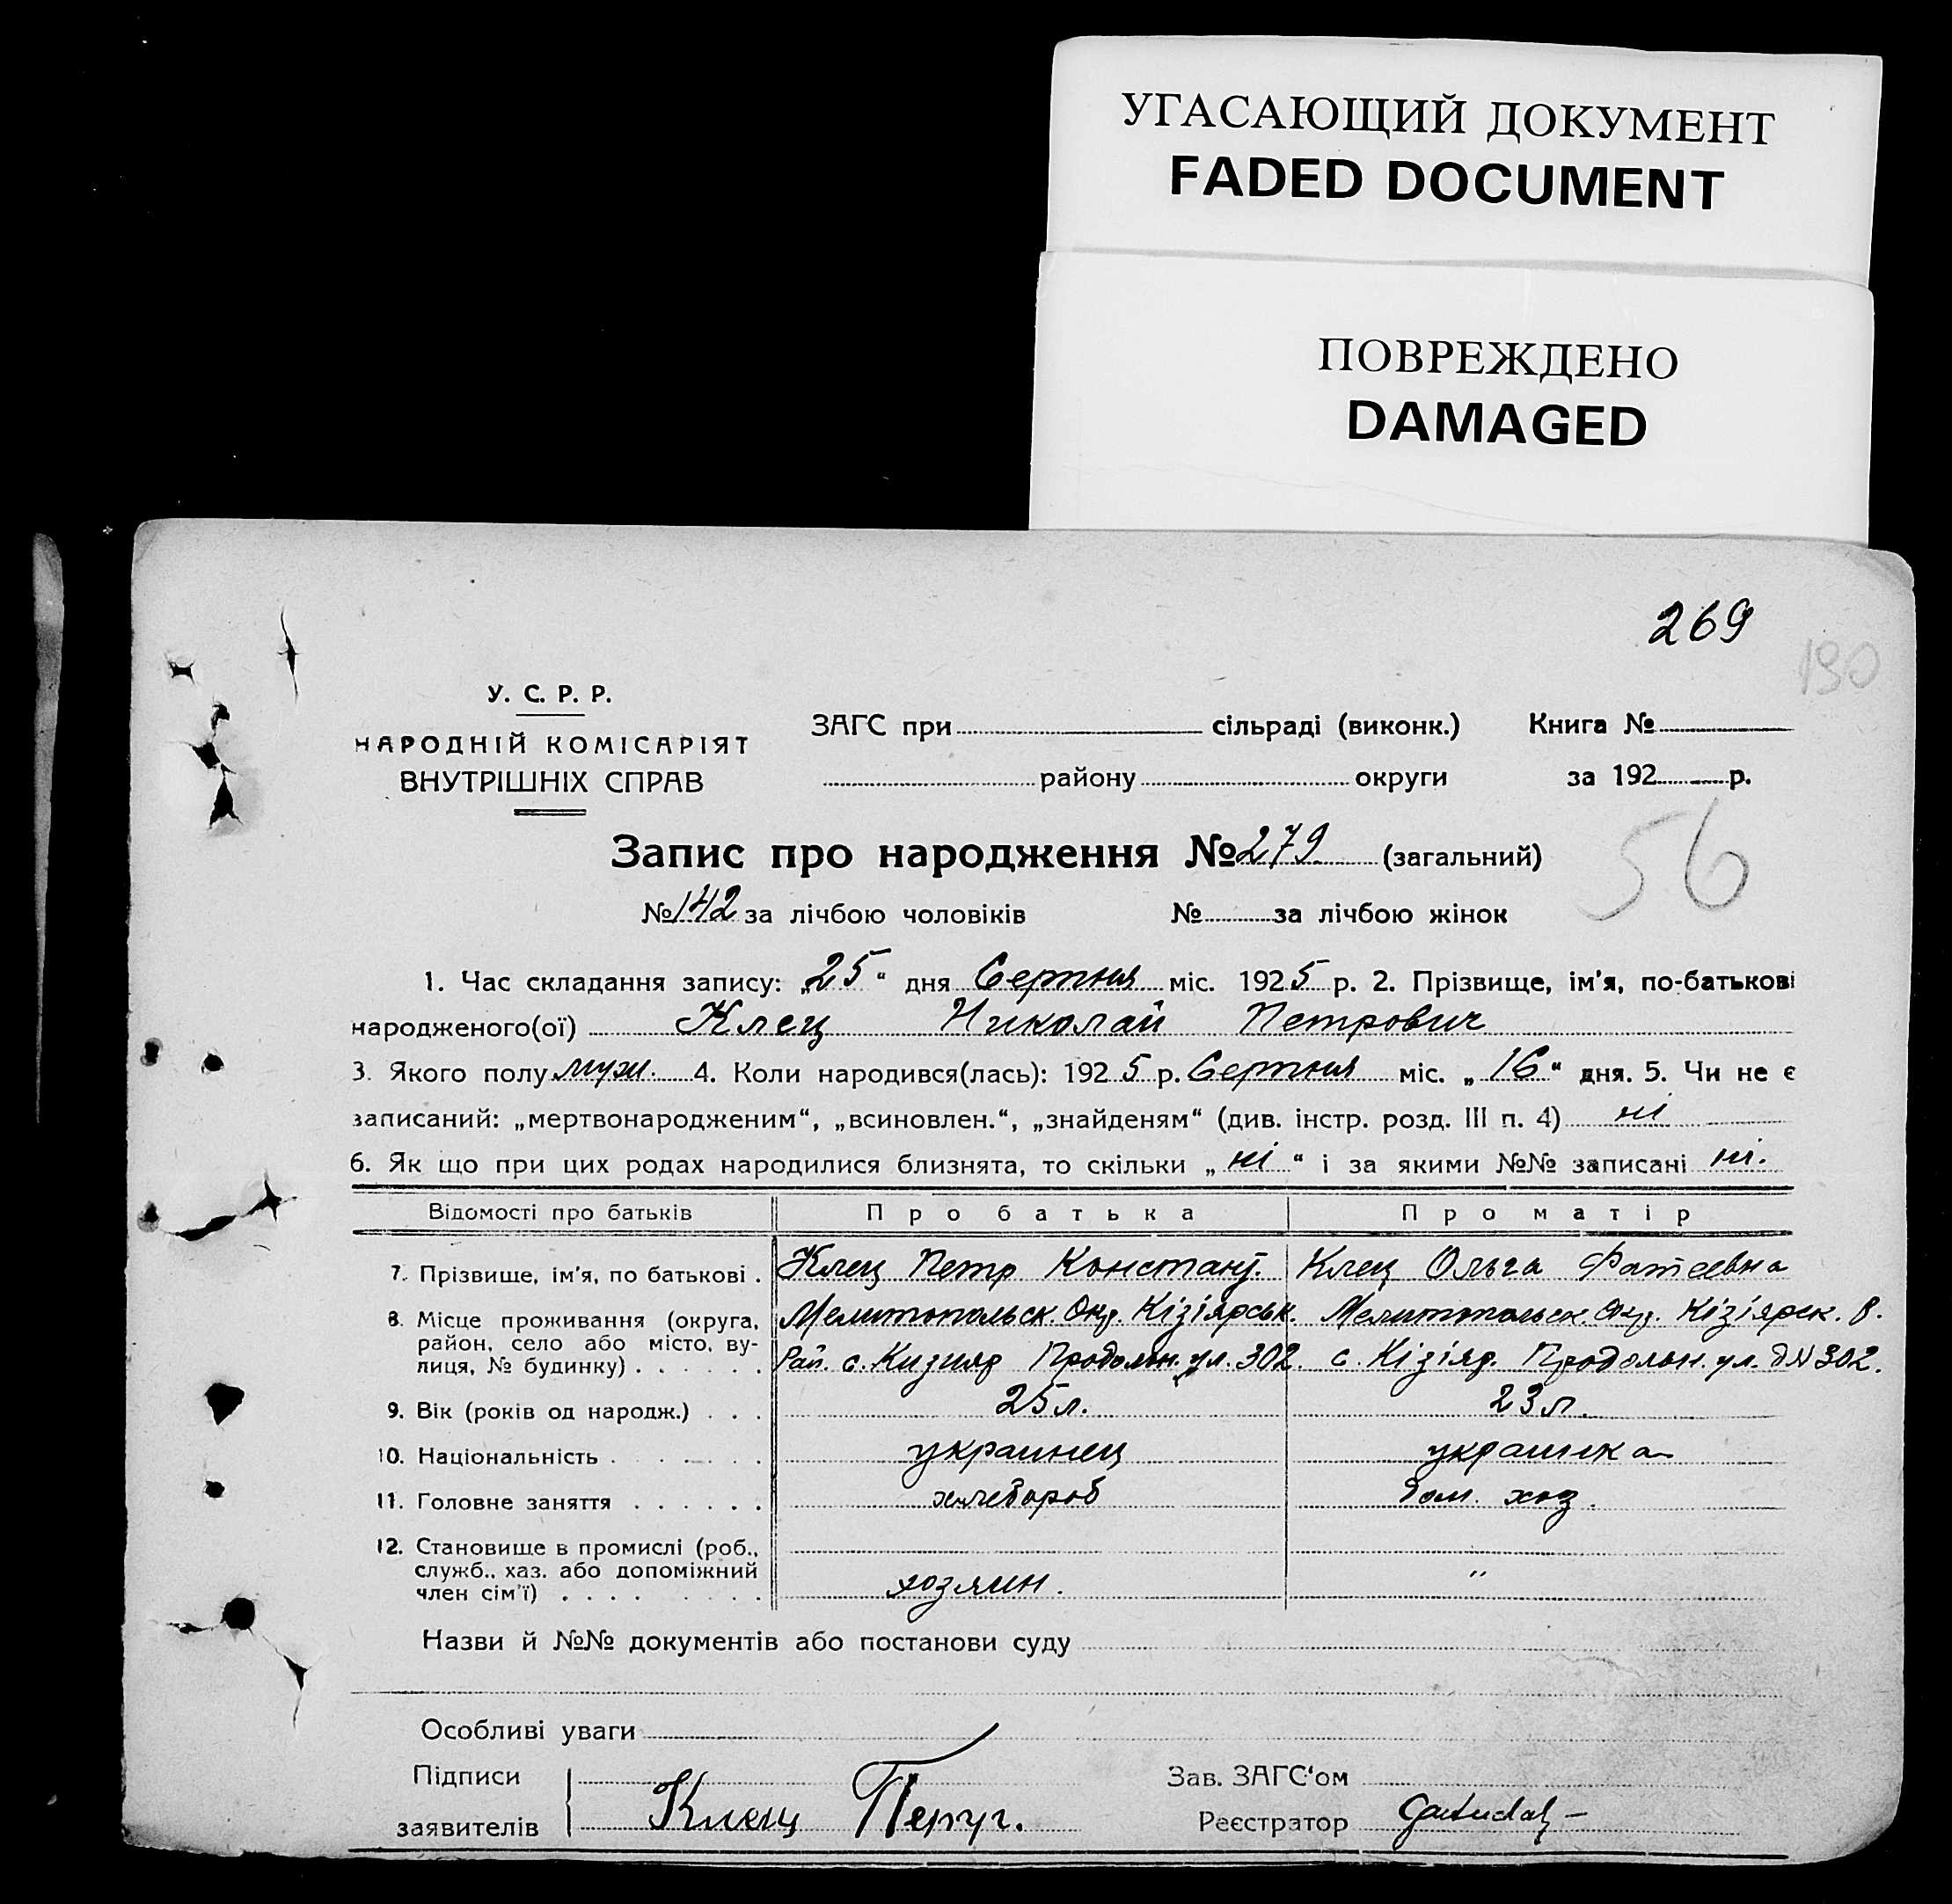 УГАСАЮЩИЙ ДОКУМЕНТ
FADED DOCUMENT
ПОВРЕЖДЕНО
DAMAGED
269
190
У. С. Р. Р.
НАРОДНІЙ КОМІСАРІЯТ
ВНУТРІШНІХ СПРАВ
ЗАГС при сільраді (виконк.) Книга №
району округи за 192 р.
56
Запис про народження № 279 (загальний)
№ 142 за лічбою чоловіків № за лічбою жінок
1. Час складання запису: „25“ дня Серпня міс. 1925 р. 2. Прізвище, ім'я, по-батькові
народженого(ої) Клец Николай Петрович
3. Якого полу муж. 4. Коли народився(лась): 1925 р. Серпня міс. „16“ дня. 5. Чи не є
записаний: „мертвонародженим“, „всиновлен.“, „знайденям“ (див. інстр. розд. III п. 4) ні
6. Як що при цих родах народилися близнята, то скільки „ні“ і за якими №№ записані ні.
Відомості про батьків Про батька Про матір
7. Прізвище, ім'я, по батькові . Клец Петр Констант. Клец Ольга Фатеевна
8. Місце проживання (округа, район, село або місто, вулиця, № будинку) . . . . . .
Мелитопольск. Окр. Кізіярськ.
Рай. с. Кизияр Продольн. ул. 302
Мелитопольск. Окр. Кізіярск. р.
с. Кізіяр. Продольн. ул. д N 302.
9. Вік (років од народж.) . . . 25 л. 23 л.
10. Національність . . . . . . . украинец украинка
11. Головне заняття . . . . . . хлебороб дом. хоз.
12. Становище в промислі (роб., служб., хаз. або допоміжний член сім'ї) . . . . . . . . хозяин. "
Назви й №№ документів або постанови суду
Особливі уваги
Підписи
заявителів Клец
Зав. ЗАГС'ом
Реєстратор